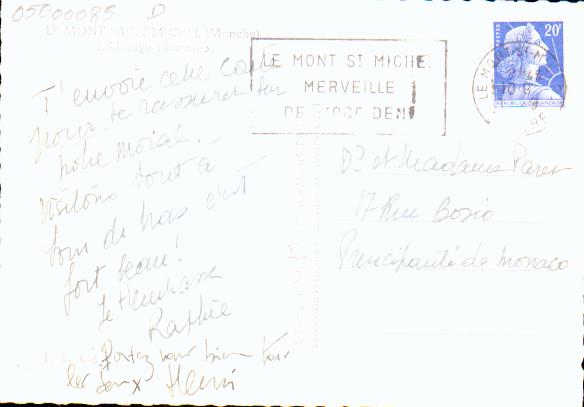 05000085 D
LE MONT SAINT-MICHEL (Manche)
LE MONT ST MICHEL
MERVEILLE
DE L'OCCIDENT
POSTES 20F
REPUBLIQUE FRANCAISE
J'envoie cette carte
pour te rassurer sur
notre moral.
Visitons tout à
c'est
fort beau!
Je t'embrasse
Portez vous bien tous
les deux Henri
Dr et Madame Paret
17 Rue Bosio
Principauté de Monaco